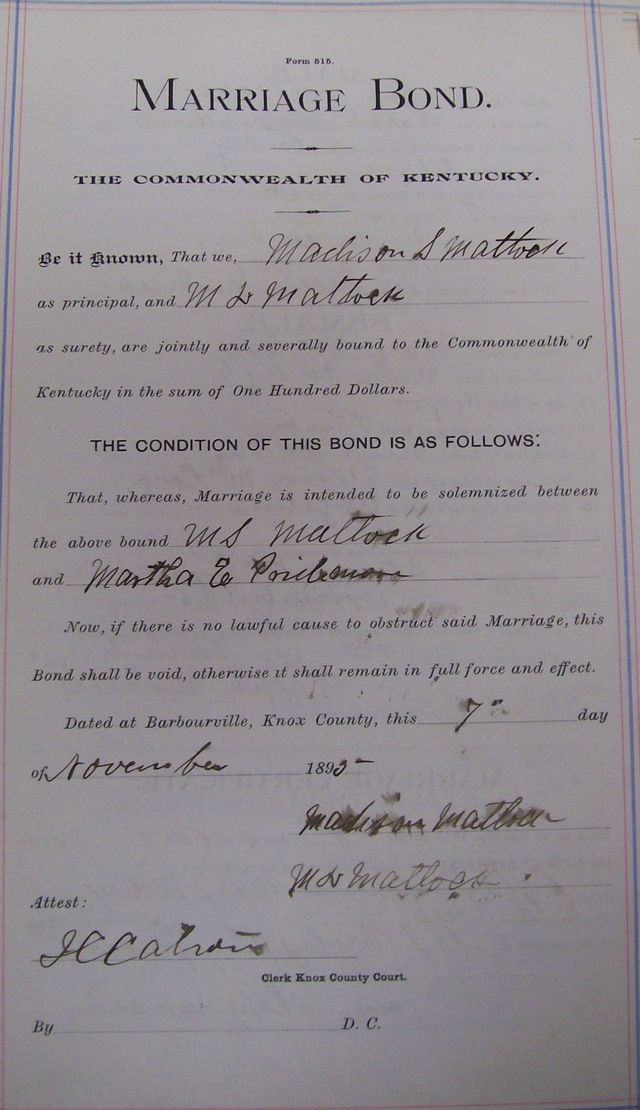 Form 515.
MARRIAGE BOND.
THE COMMONWEALTH OF KENTUCKY.
Be it Known, That we, Madison S Matlock
as principal, and M L Matlock
as surety, are jointly and severally bound to the Commonwealth of
Kentucky in the sum of One Hundred Dollars.
THE CONDITION OF THIS BOND IS AS FOLLOWS:
That, whereas, Marriage is intended to be solemnized between
the above bound MS Matlock
and Martha E
Now, if there is no lawful cause to obstruct said Marriage, this
Bond shall be void, otherwise it shall remain in full force and effect.
Dated at Barbourville, Knox County, this 7" day
of November 1895
Madison Matlock
M L Matlock
Attest:
Clerk Knox County Court.
By D. C.